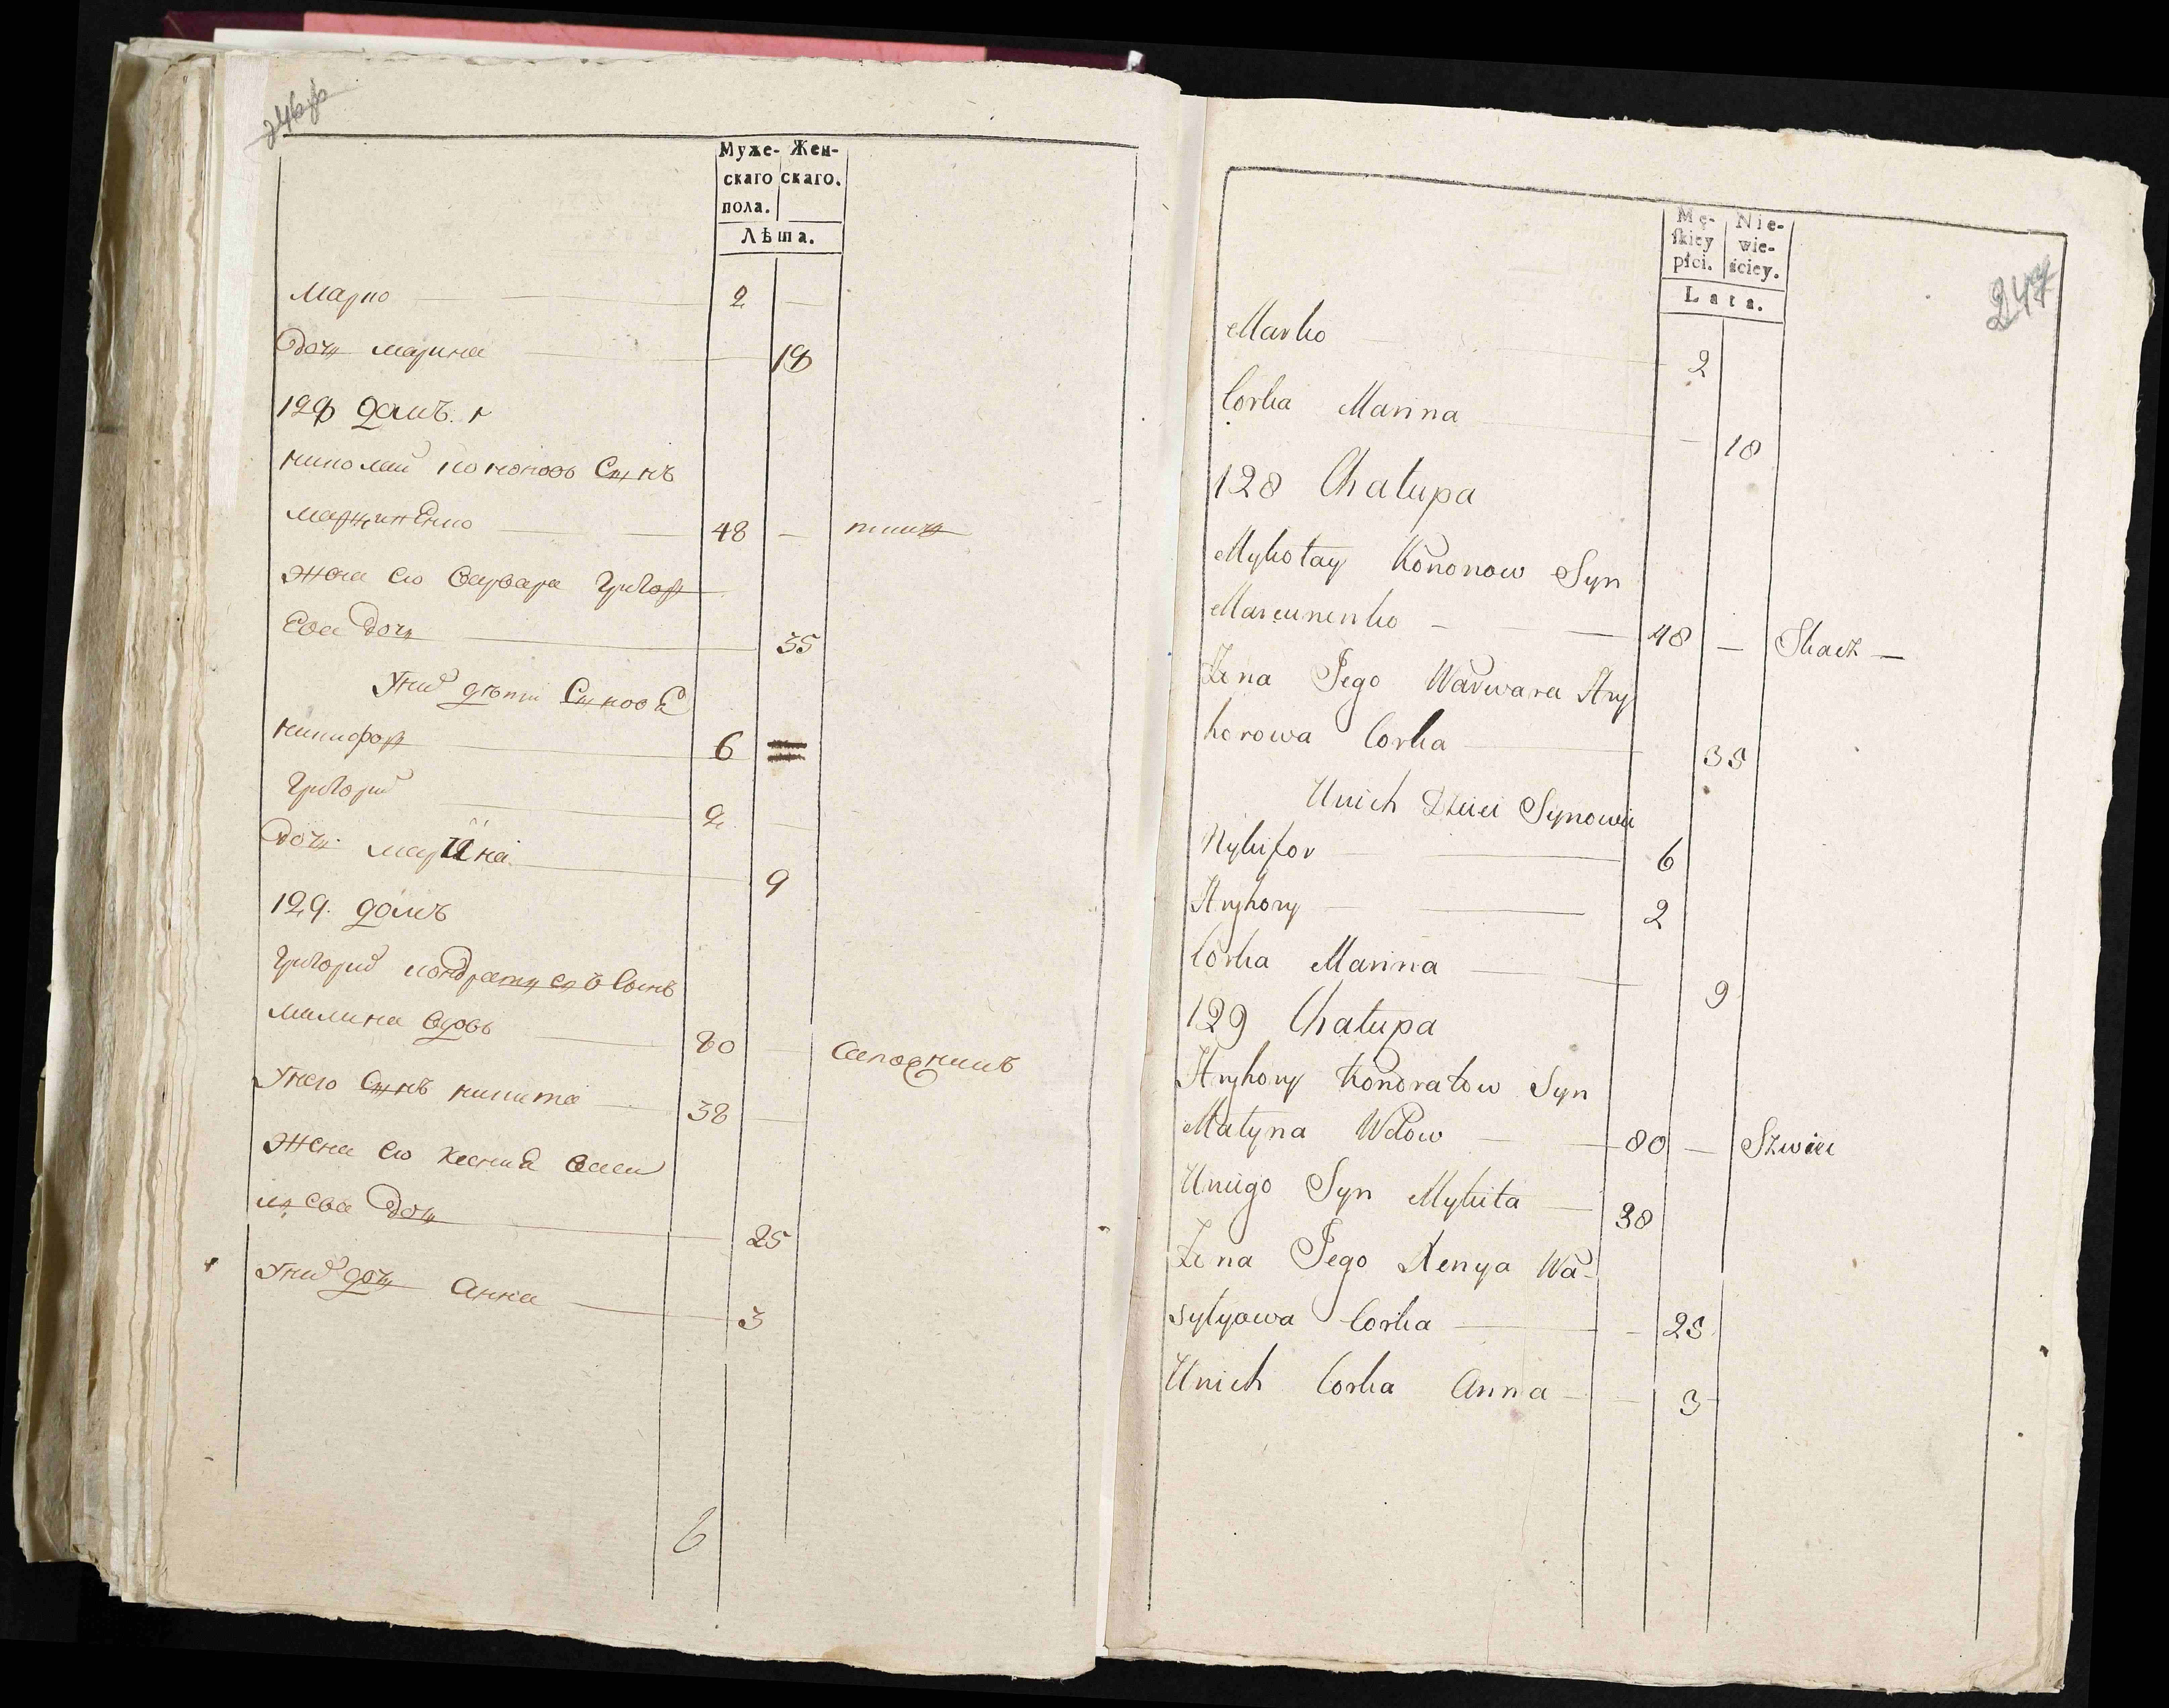 Муже- Жен-
скаго скаго.
пола.
Лѣта.
Марко 2 —
Дочь марина 18
128 домъ.
николай кононовъ Сынъ
марцинЕнко 48 — ткачь
жена его варвара григор
Ева дочь 35
Уних дѣти СыновЕ
никифор 6
григорий 2
Дочь марина 9
129. домъ
григорий кондратиевъ Сынъ
малина вдовъ 80 Сапожникъ
Унего Сынъ никита 38
жена его ксения васи
лиева дочь 25
Уних дочь анна 3
6
247
Mę- Nie-
ſkiey wie-
płci. ściey.
Lata.
Marko 2
Corka Marina — 18
128 Chałupa
Mykołay Kononow Syn
Marcunenko — — 48 — Tkacz —
Żena Jego Warwara Hry
horowa Corka 35
Unich Dzieci Synowie
Nykifor — 6
Hryhory — 2
Corka Marina — 9
129 Chałupa
Hryhory Kondratow Syn
Małyna Wdow — 80 — Szwiec
Uniego Syn Mykita — 38
Żena Jego Xenya Wa-
sylyowa Corka — 25
Unich Corka Anna — 3